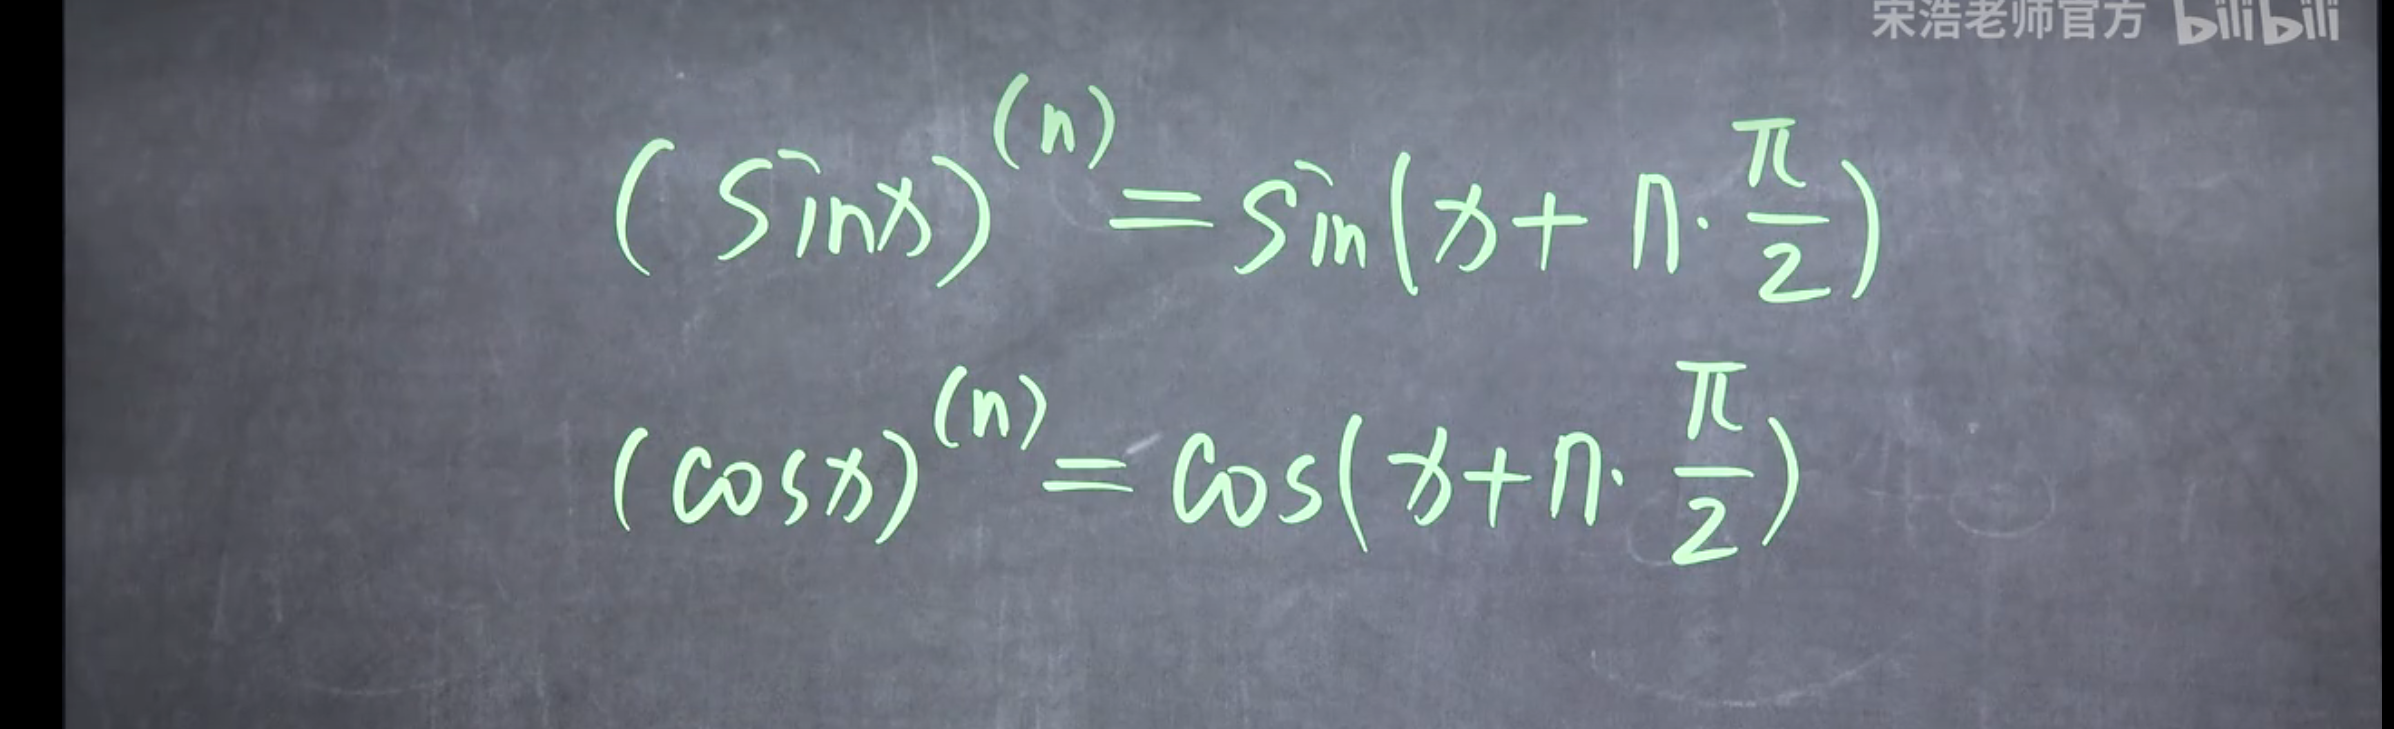 宋浩老师官方 bilibili
(sinx)^(n) = sin(x + n · π/2)
(cosx)^(n) = cos(x + n · π/2)